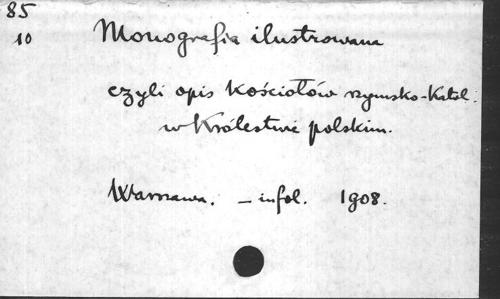 85
10
Monografia ilustrowana
czyli opis Kościołów rzymsko-Katol.
w Królestwie polskim.
Warszawa. – infol. 1908.